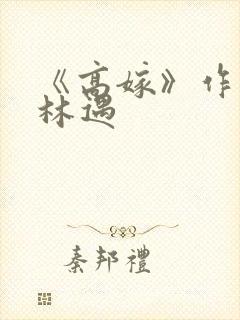 《高嫁》作
林遇
秦邦禮